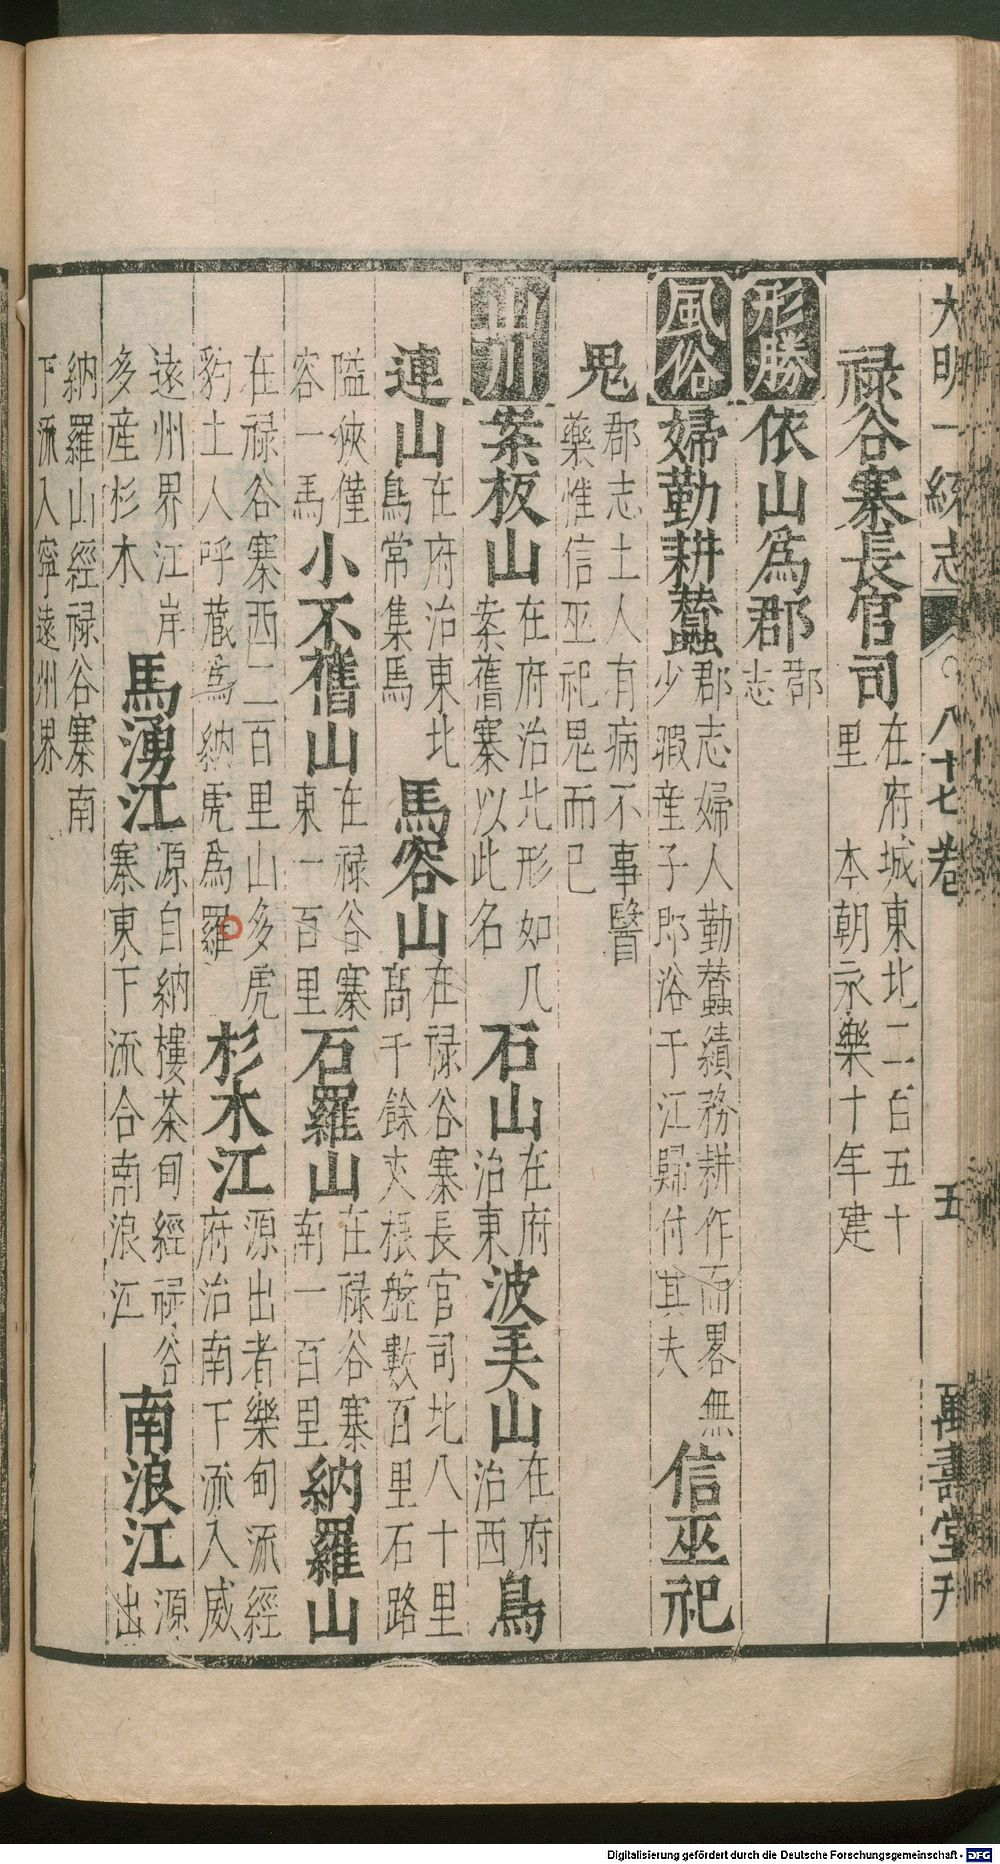 大明一統志 八十七卷 五 萬壽堂刋
祿谷寨長官司在府城東北二百五十里本朝永樂十年建
形勝依山爲郡郡志
風俗婦勤耕蠶郡志婦人勤蠶績務耕作而畧無少暇產子即浴于江歸付其夫信巫祀
鬼郡志土人有病不事醫藥惟信巫祀鬼而已
山川案板山在府治北形如几案舊寨以此名石山在府治東波弄山在府治西鳥
連山在府治東北鳥常集焉馬容山在祿谷寨長官司北八十里高千餘丈根盤數百里石路
隘俠僅容一馬小不舊山在祿谷寨東一百里石羅山在祿谷寨南一百里納羅山
在祿谷寨西二百里山多虎豹土人呼藏爲納虎爲羅杉木江源出者樂甸流經府治南下流入威
遠州界江岸多產杉木馬湧江源自納樓茶甸經祿谷寨東下流合南浪江南浪江源出
納羅山經祿谷寨南下流入寧遠州界
Digitalisierung gefördert durch die Deutsche Forschungsgemeinschaft - DFG